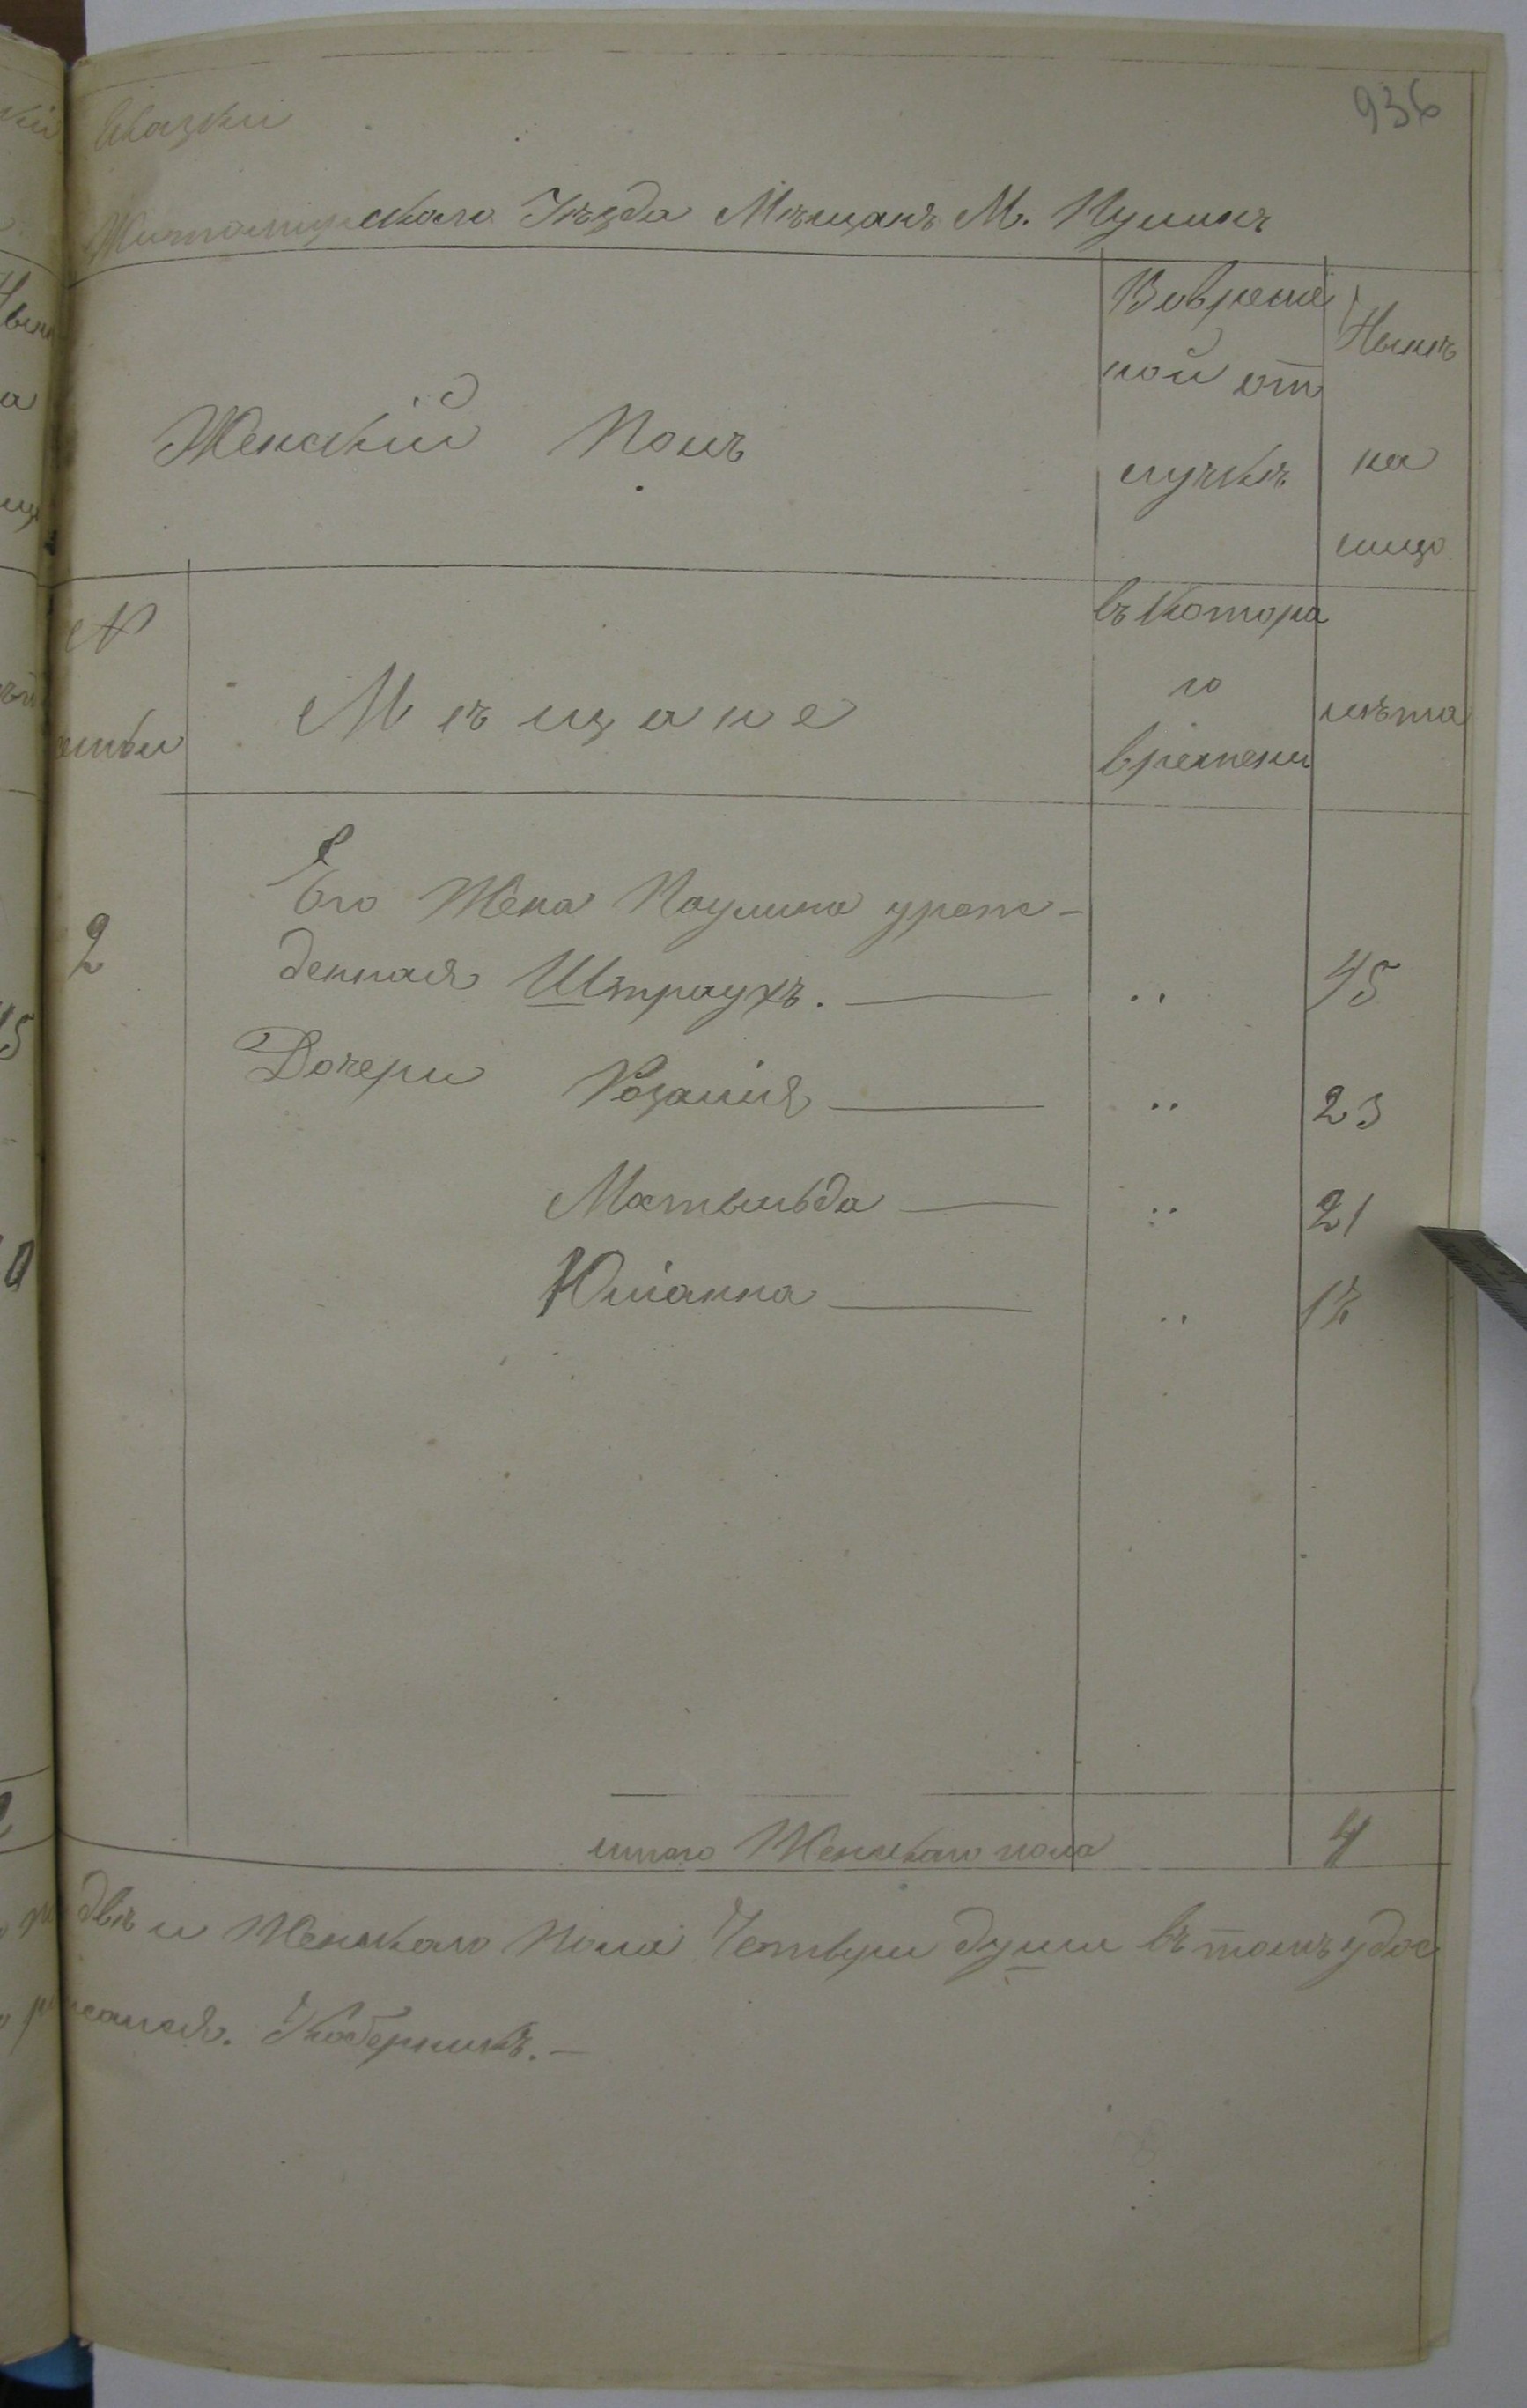 936
Сказки
Житомирскаго Уѣзда Мѣщанъ М.
Женскій Полъ
Вовремѣ
ной от
лучкѣ
Нынѣ
на
лицо
№
семьи
Мѣщане
въ котора
го
времени
лѣта
2
Его Жена Паулина урож-
денная Штраухъ. — „ 45
Дочери Розалія — „ 23
Матвильда — „ 21
Юліанна — „
итого Женскаго пола 4
двѣ и Женскаго пола Четыри души въ томъ удос